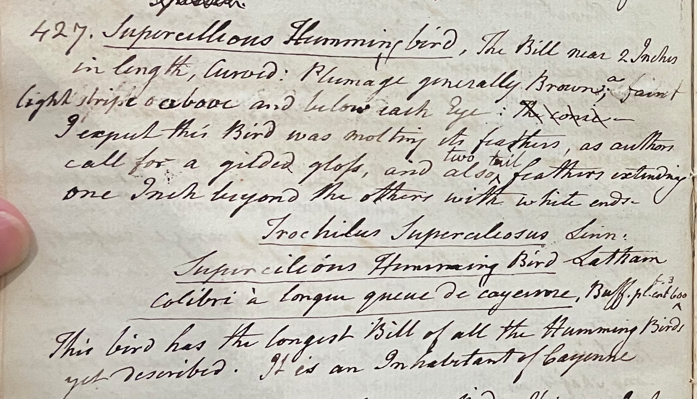 427. Supercillious Humming bird, The Bill near 2 Inches
in length, Curved: Plumage generally Brown; a faint
light stripe above and below each Eye: The conse-
I expect this Bird was molting its feathers, as authors
call for a gilded gloss, and also two tail feathers extending
one Inch beyond the others with white ends-
Trochilus Superciliosus Linn:
Supercilious Humming Bird Latham
Colibri à longue queue de cayenne, Buff. pl. enl. 600
This bird has the longest Bill of all the Humming Birds
yet described. It is an Inhabitant of Cayenne